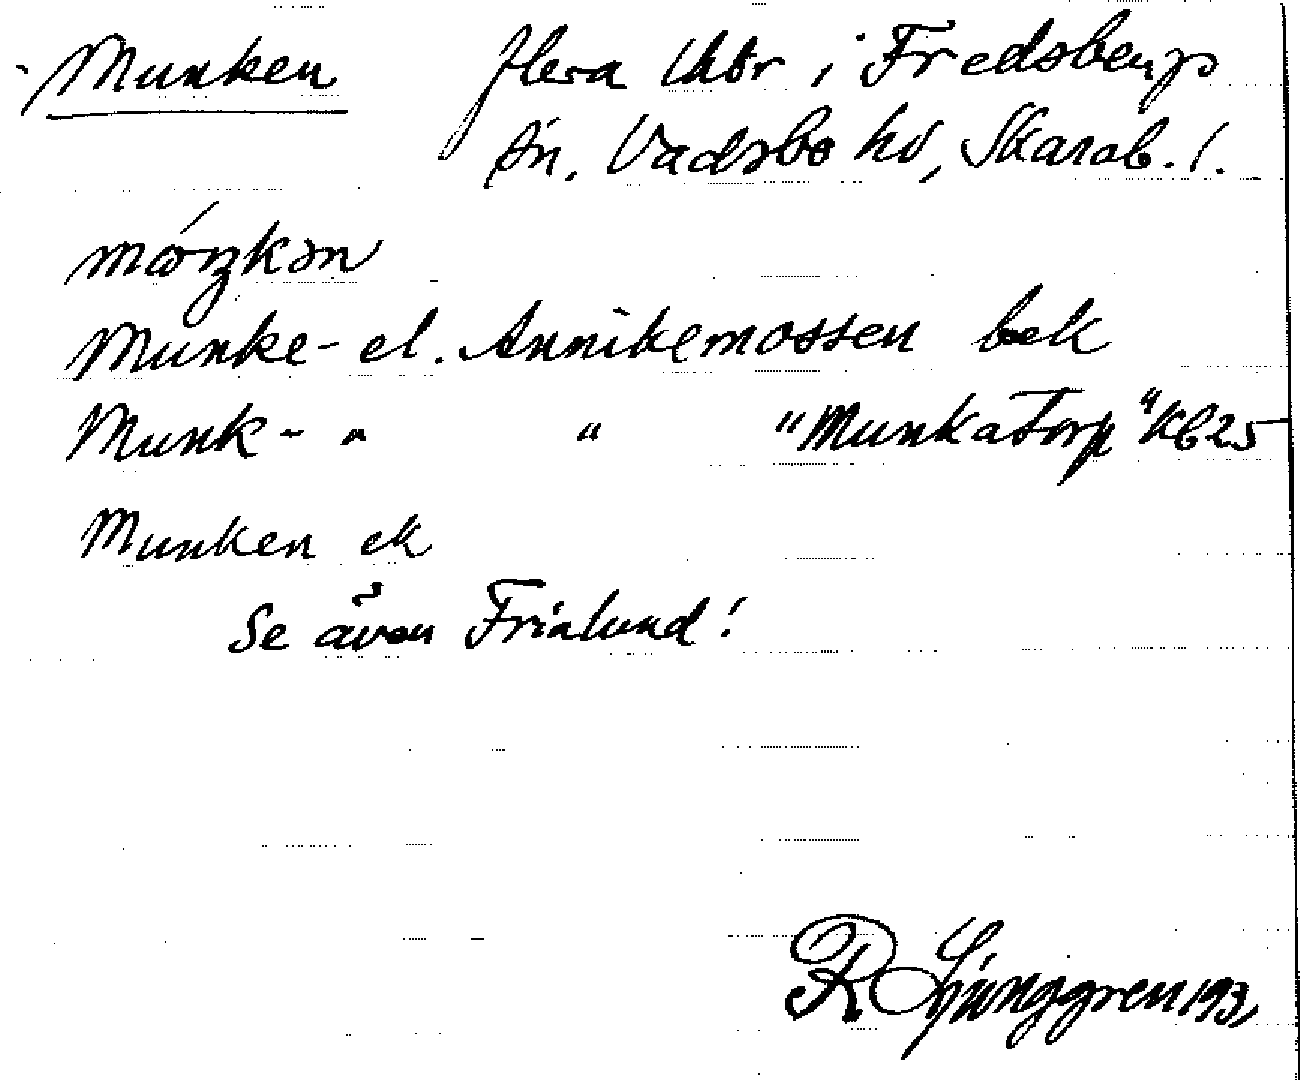 Munken flera lhtr i Fredsbergs
sn. Vadsbo hd, Skarab. l.
móŋkən
Munke- el. Annikemossen bek
Munk- " " "Munkatorp" Kb 25
Munken ek
Se även Frialund!
R Ljunggren 193